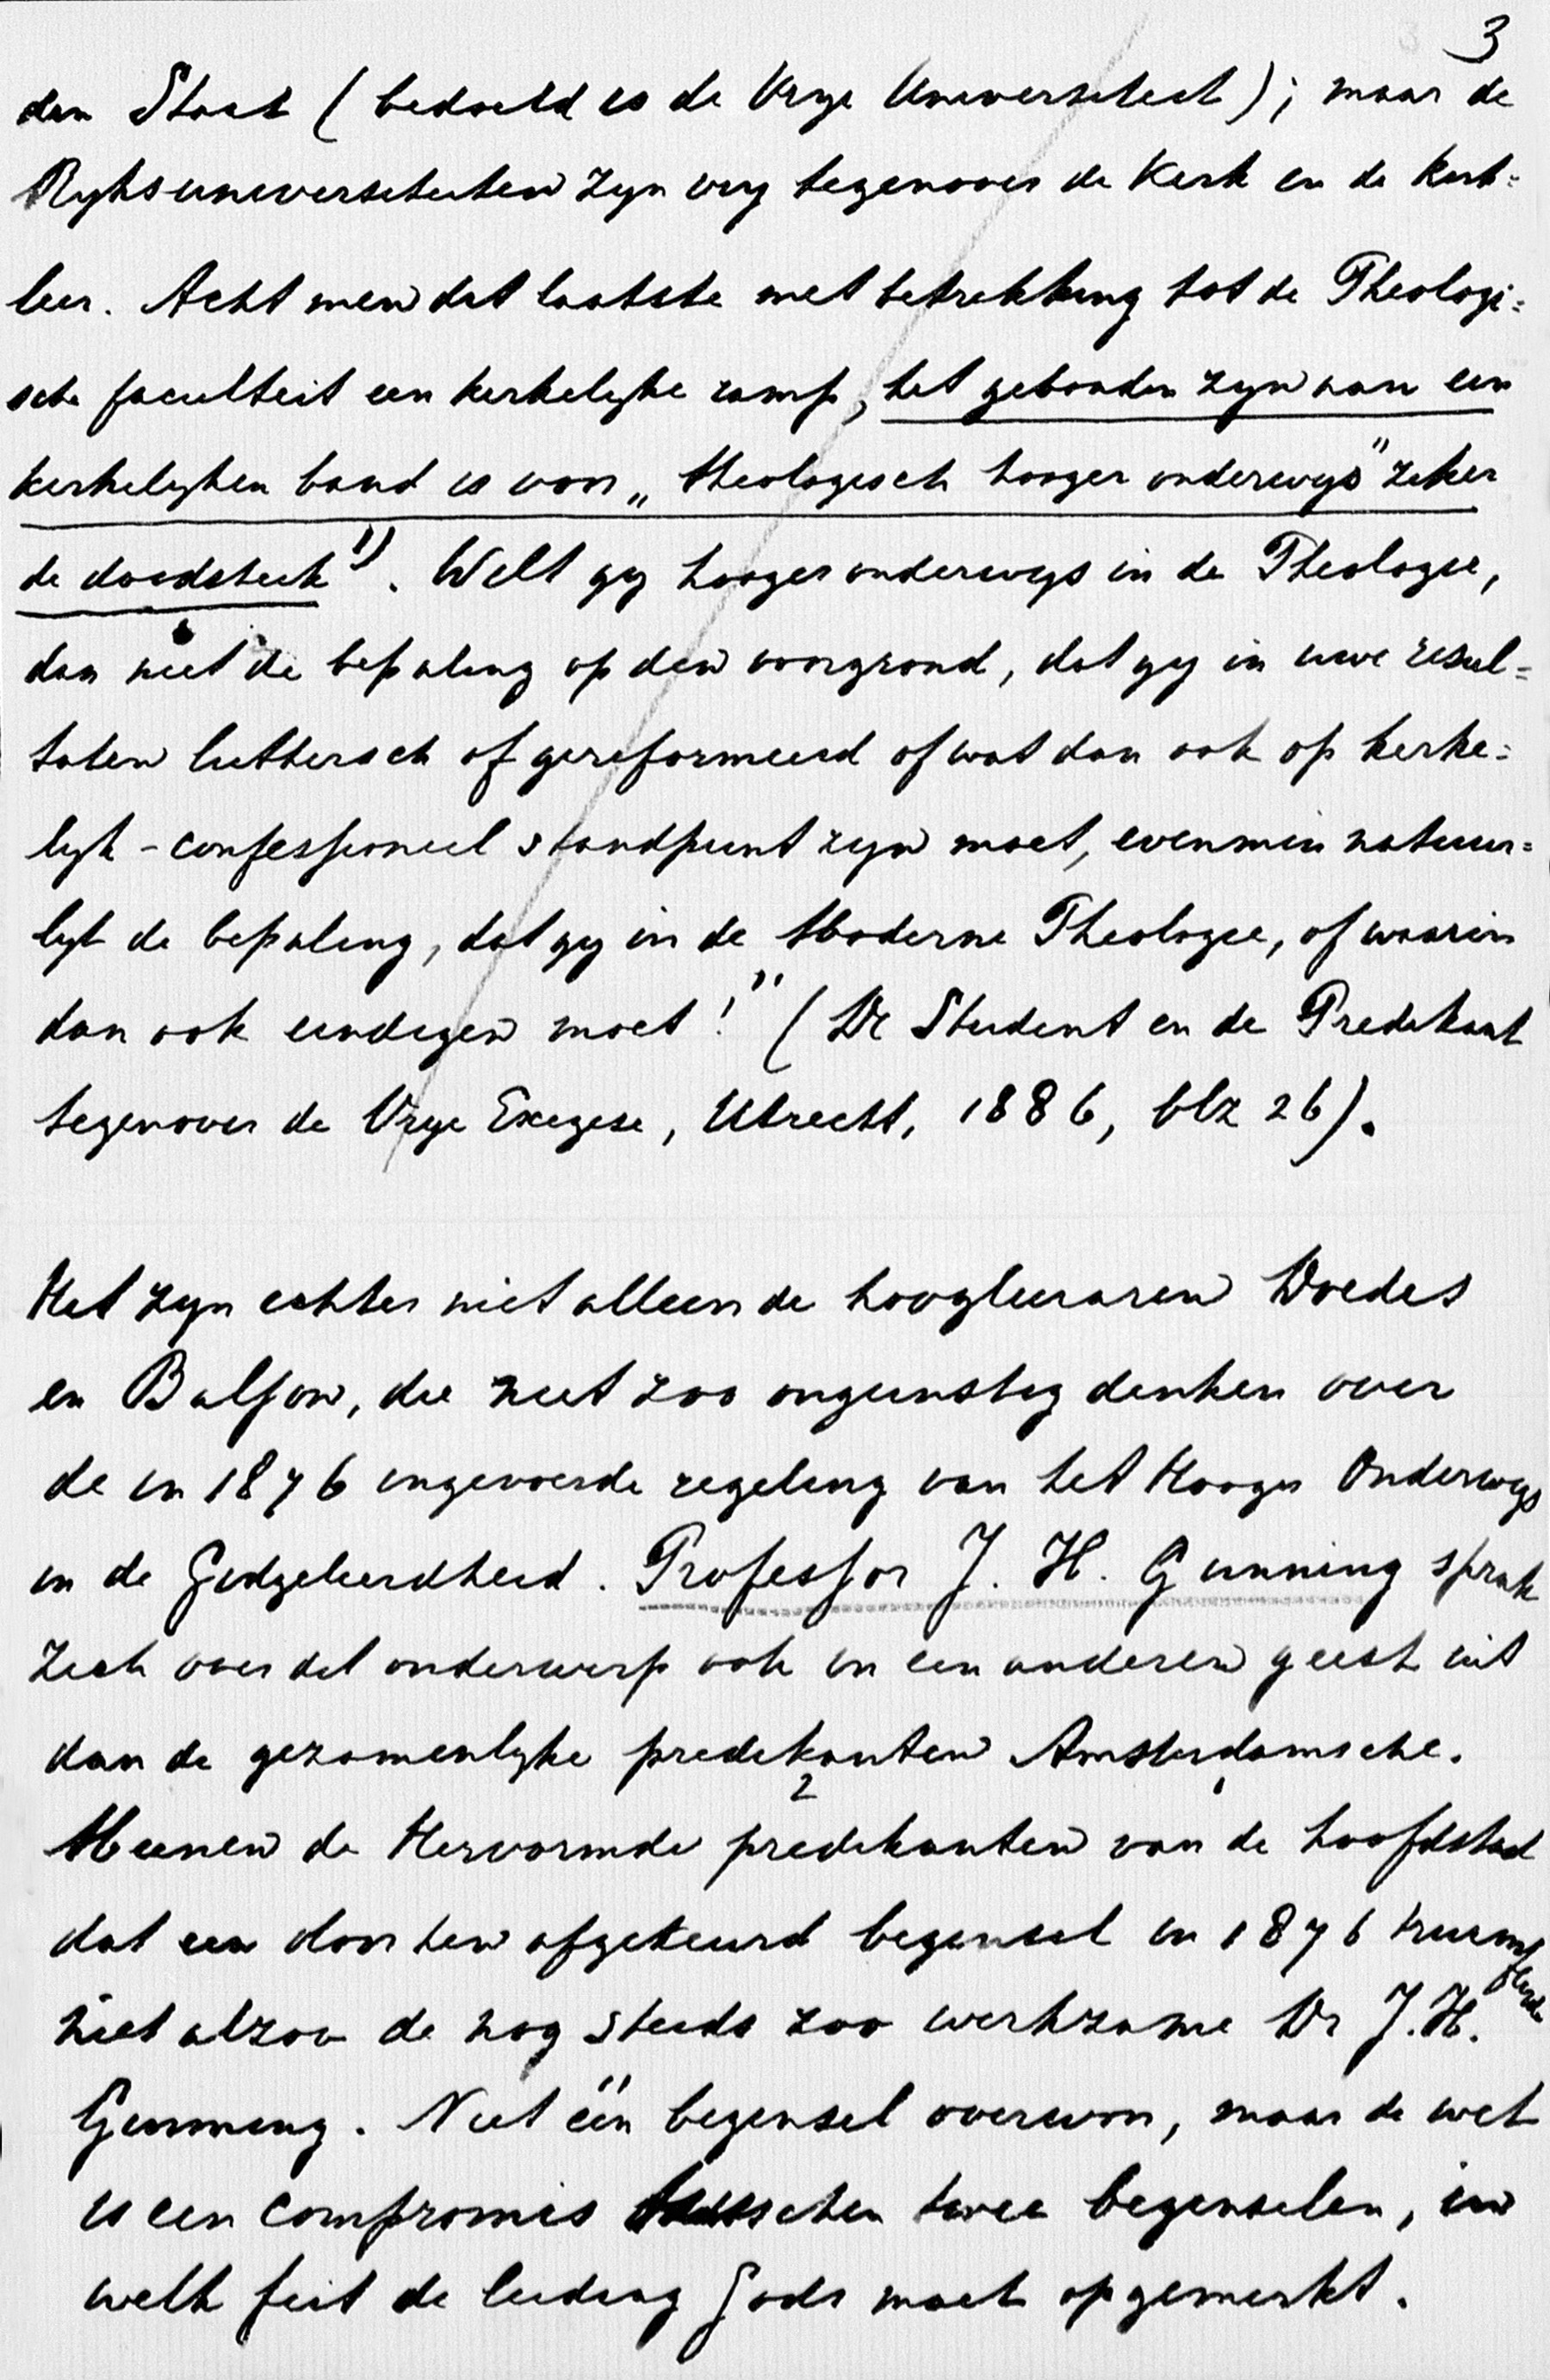 3
den Staat (bedoeld is de Vrye Universiteit); maar de
Ryksuniversiteiten zyn vry tegenover de Kerk en de kerk=
leer. Acht men dat laatste met betrekking tot de Theologi=
sche faculteit een kerkelyke ramp, het gebonden zyn aan een
kerkelyken band is voor „theologisch hooger onderwys" zeker
de doodsteek 1). Wilt gy hooger onderwys in de Theologie,
dan niet de bepaling op den voorgrond, dat gy in uwe resul=
taten luthersch of gereformeerd of wat dan ook op kerke=
lyk-confessioneel standpunt zyn moet, evenmin natuur=
lyk de bepaling, dat gy in de Moderne Theologie, of waarin
dan ook eindigen moet!" (De Student en de Predikant
tegenover de Vrye Exegese, Utrecht, 1886, blz 26).
Het zyn echter niet alleen de hoogleeraren Doedes
en Baljon, die niet zoo ongunstig denken over
de in 1876 ingevoerde regeling van het Hooger Onderwys
in de Godgeleerdheid. Professor J. H. Gunning sprak
zich over dit onderwerp ook in een anderen geest uit
dan de gezamenlyke predikanten Amsterdamsche.
2
Meenen de Hervormde predikanten van de hoofdstad
dat een door hen afgekeurd beginsel in 1876 triumfeerde
niet alzoo de nog steeds zoo werkzame Dr J. H.
Gunning. Niet één beginsel overwon, maar de wet
is een compromis tusschen twee beginselen, in
welk feit de leiding Gods moet opgemerkt.